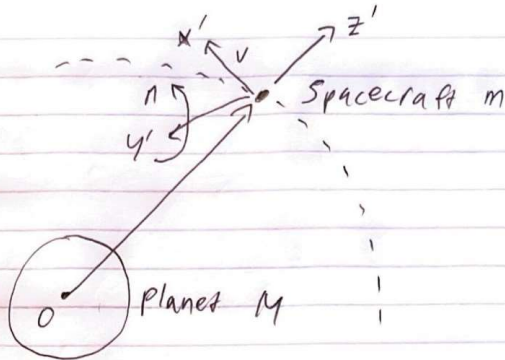 x'
v
z'
n
Spacecraft m
y'
O
Planet M